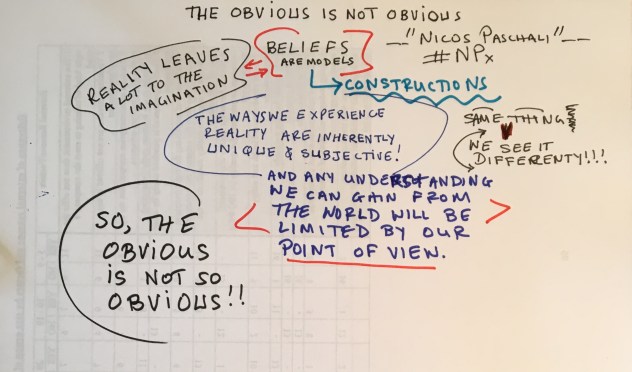 THE OBVIOUS IS NOT OBVIOUS
— "NICOS PASCHALI" —
#NPx
REALITY LEAVES
A LOT TO THE
IMAGINATION
BELIEFS
ARE MODELS
CONSTRUCTIONS
THE WAYS WE EXPERIENCE
REALITY ARE INHERENTLY
UNIQUE & SUBJECTIVE!
SAME THING
WE SEE IT
DIFFERENTY!!!
AND ANY UNDERSTANDING
WE CAN GAIN FROM
THE WORLD WILL BE
LIMITED BY OUR
POINT OF VIEW.
SO, THE
OBVIOUS
IS NOT SO
OBVIOUS!!